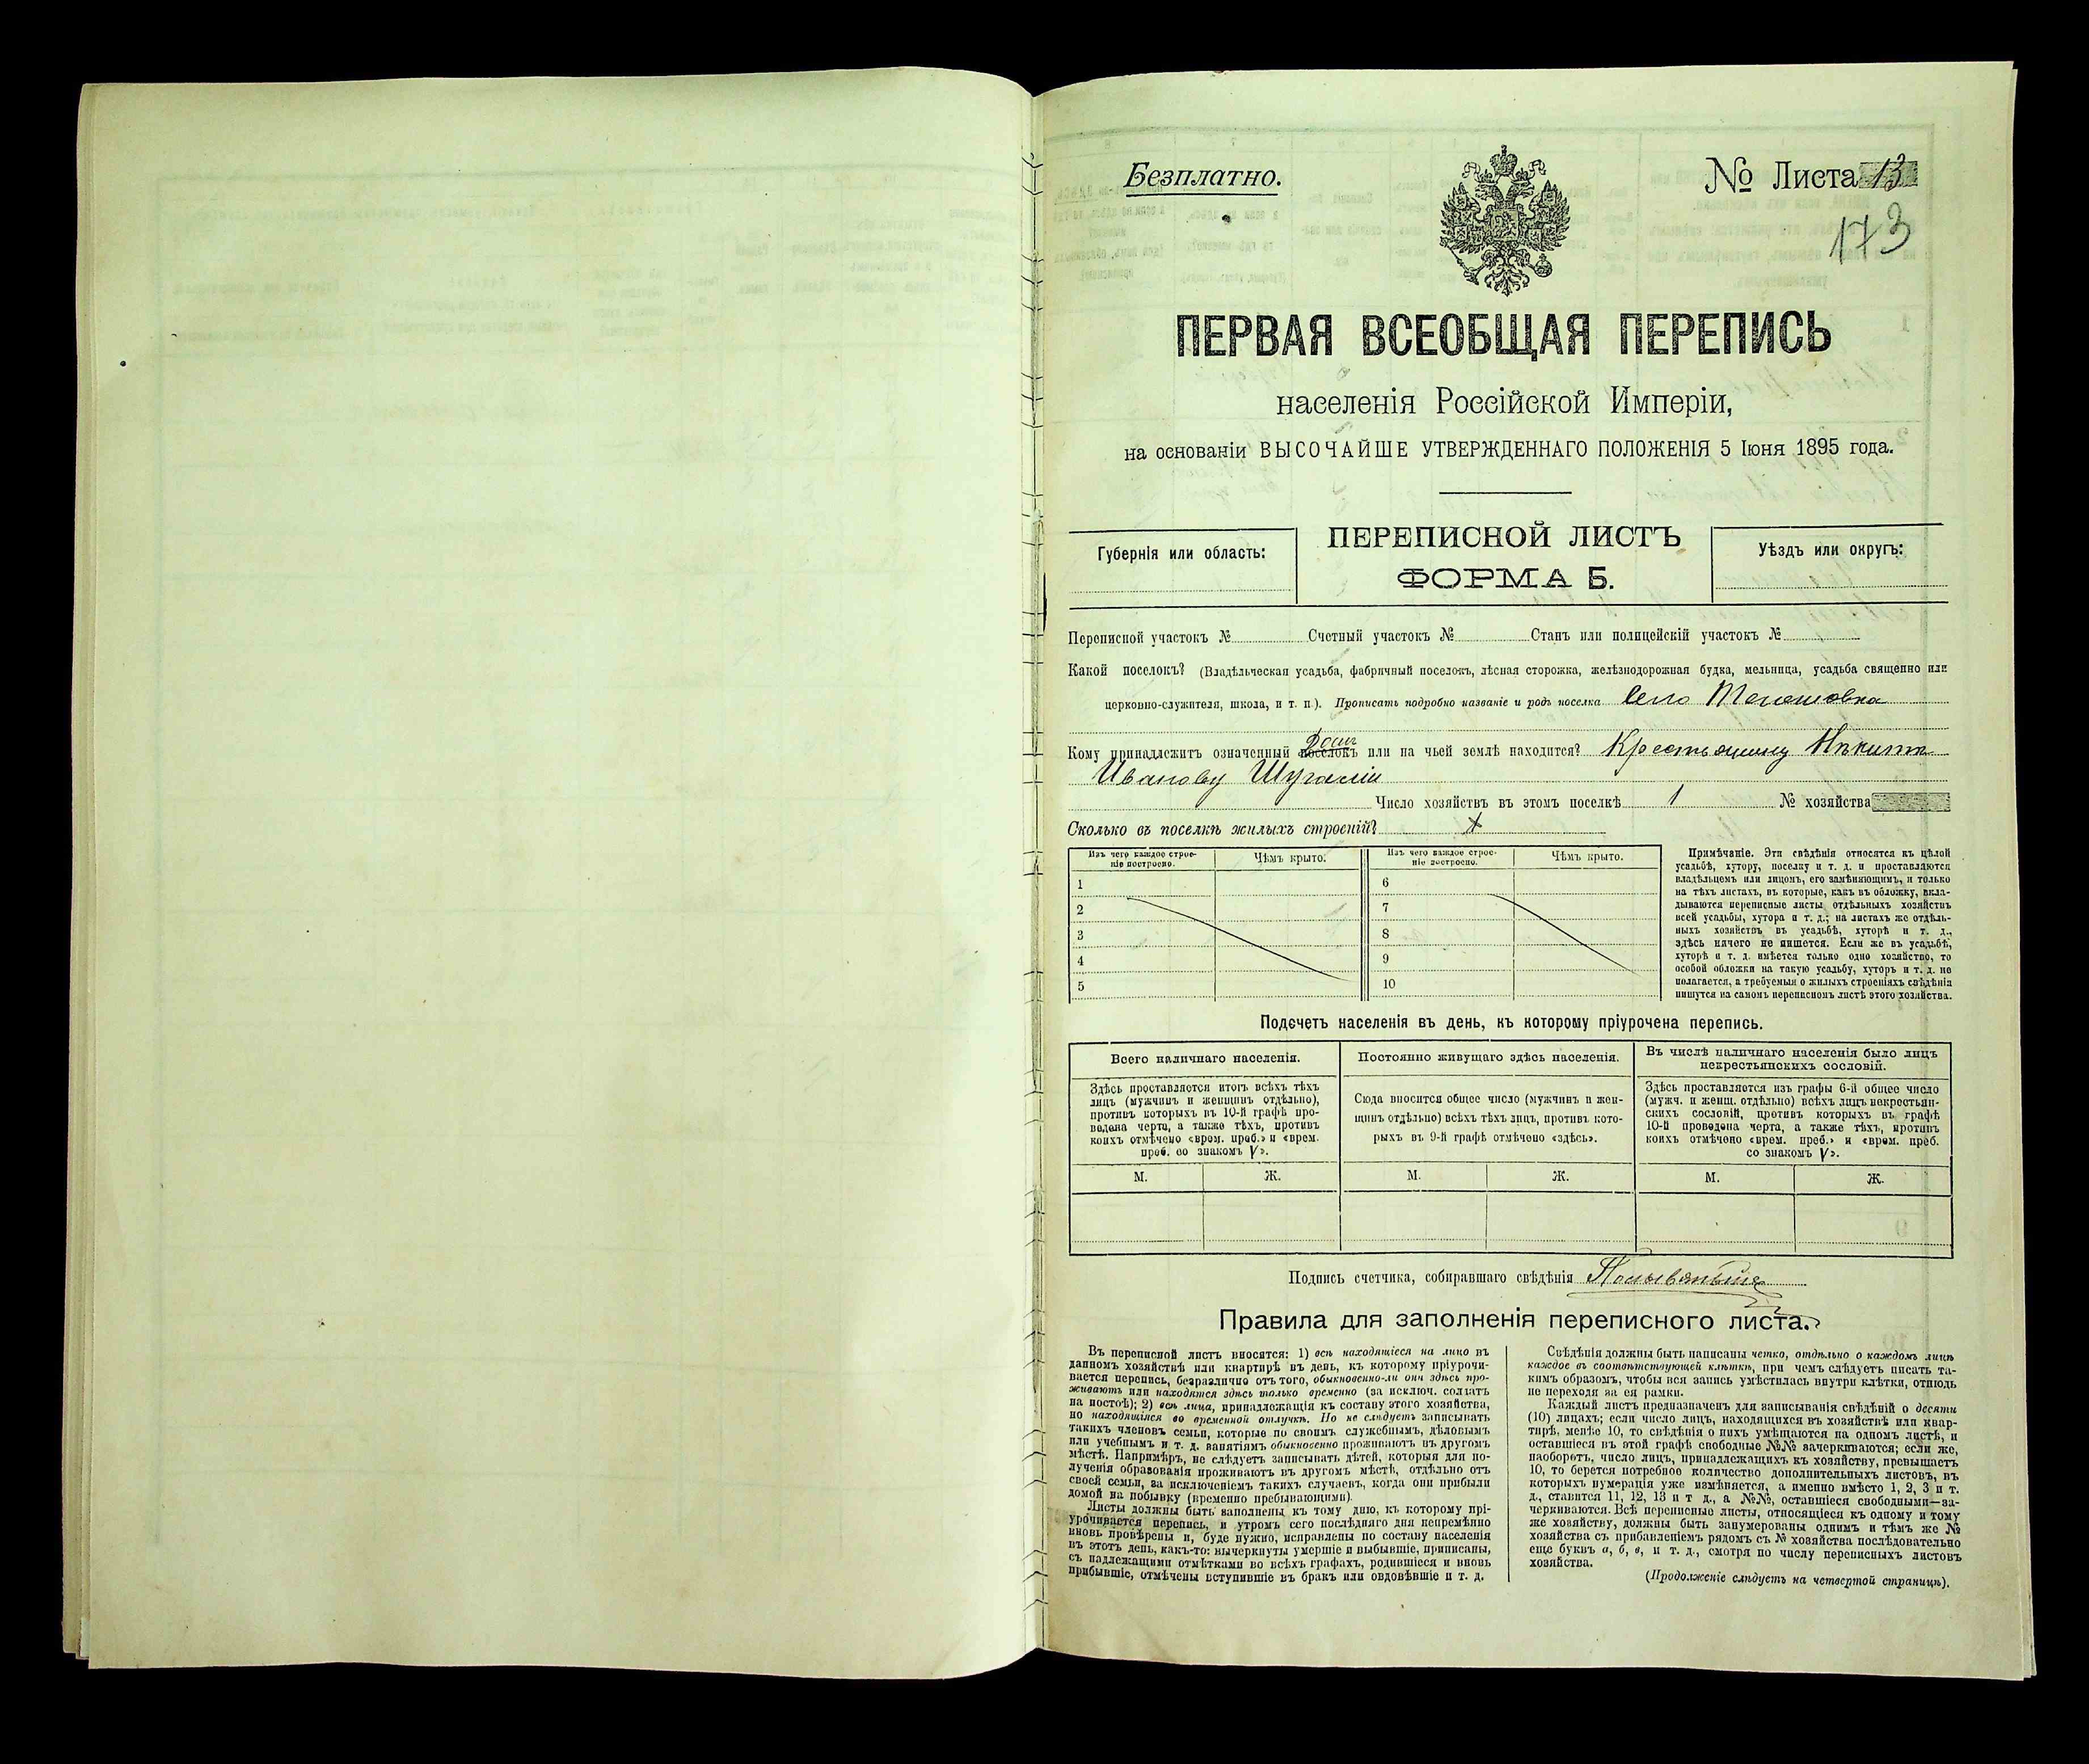 Безплатно.
№ Листа 13
173
ПЕРВАЯ ВСЕОБЩАЯ ПЕРЕПИСЬ
населенія Россійской Имперіи,
на основаніи ВЫСОЧАЙШЕ УТВЕРЖДЕННАГО ПОЛОЖЕНІЯ 5 Іюня 1895 года.
Губернія или область:
ПЕРЕПИСНОЙ ЛИСТЪ
ФОРМА Б.
Уѣздъ или округъ:
Переписной участокъ № Счетный участокъ № Станъ или полицейскій участокъ №
Какой поселокъ? (Владѣльческая усадьба, фабричный поселокъ, лѣсная сторожка, желѣзнодорожная будка, мельница, усадьба священно или
церковно-служителя, школа, и т. п.). Прописать подробно названіе и родъ поселка Село
Домъ
Кому принадлежитъ означенный поселокъ или на чьей землѣ находится? Крестьянину Никитѣ
Иванову
Число хозяйствъ въ этомъ поселкѣ 1 № хозяйства
Сколько въ поселкѣ жилыхъ строеній? X
Изъ чего каждое строе-
ніе построено.
Чѣмъ крыто.
Изъ чего каждое строе-
ніе построено.
Чѣмъ крыто.
1
2
3
4
5
6
7
8
9
10
Примѣчаніе. Эти свѣдѣнія относятся къ цѣлой
усадьбѣ, хутору, поселку и т. д. и проставляются
владѣльцемъ или лицомъ, его замѣняющимъ, и только
на тѣхъ листахъ, въ которые, какъ въ обложку, вкла-
дываются переписные листы отдѣльныхъ хозяйствъ
всей усадьбы, хутора и т. д.; на листахъ же отдѣль-
ныхъ хозяйствъ въ усадьбѣ, хуторѣ и т. д.,
здѣсь ничего не пишется. Если же въ усадьбѣ,
хуторѣ и т. д. имѣется только одно хозяйство, то
особой обложки на такую усадьбу, хуторъ и т. д. не
полагается, а требуемыя о жилыхъ строеніяхъ свѣдѣнія
пишутся на самомъ переписномъ листѣ этого хозяйства.
Подсчетъ населенія въ день, къ которому пріурочена перепись.
Всего наличнаго населенія.
Здѣсь проставляется итогъ всѣхъ тѣхъ
лицъ (мужчинъ и женщинъ отдѣльно),
противъ которыхъ въ 10-й графѣ про-
ведена черта, а также тѣхъ, противъ
коихъ отмѣчено «врем. преб.» и «врем.
преб. со знакомъ V».
Постоянно живущаго здѣсь населенія.
Сюда вносится общее число (мужчинъ и жен-
щинъ отдѣльно) всѣхъ тѣхъ лицъ, противъ кото-
рыхъ въ 9-й графѣ отмѣчено «здѣсь».
Въ числѣ наличнаго населенія было лицъ
некрестьянскихъ сословій.
Здѣсь проставляется изъ графы 6-й общее число
(мужч. и женщ. отдѣльно) всѣхъ лицъ некрестьян-
скихъ сословій, противъ которыхъ въ графѣ
10-й проведена черта, а также тѣхъ, противъ
коихъ отмѣчено «врем. преб.» и «врем. преб.
со знакомъ V».
М. Ж. М. Ж. М. Ж.
Подпись счетчика, собиравшаго свѣдѣнія
Правила для заполненія переписного листа.
Въ переписной листъ вносятся: 1) всѣ находящіеся на лицо въ
данномъ хозяйствѣ или квартирѣ въ день, къ которому пріурочи-
вается перепись, безразлично отъ того, обыкновенно-ли они здѣсь про-
живаютъ или находятся здѣсь только временно (за исключ. солдатъ
на постоѣ); 2) всѣ лица, принадлежащія къ составу этого хозяйства,
но находящіяся во временной отлучкѣ. Но не слѣдуетъ записывать
такихъ членовъ семьи, которые по своимъ служебнымъ, дѣловымъ
или учебнымъ и т. д. занятіямъ обыкновенно проживаютъ въ другомъ
мѣстѣ. Напримѣръ, не слѣдуетъ записывать дѣтей, которыя для по-
лученія образованія проживаютъ въ другомъ мѣстѣ, отдѣльно отъ
своей семьи, за исключеніемъ такихъ случаевъ, когда они прибыли
домой на побывку (временно пребывающими).
Листы должны быть заполнены къ тому дню, къ которому прі-
урочивается перепись, и утромъ сего послѣдняго дня непремѣнно
вновь провѣрены и, буде нужно, исправлены по составу населенія
въ этотъ день, какъ-то: вычеркнуты умершіе и выбывшіе, приписаны,
съ надлежащими отмѣтками во всѣхъ графахъ, родившіеся и вновь
прибывшіе, отмѣчены вступившіе въ бракъ или овдовѣвшіе и т. д.
Свѣдѣнія должны быть написаны четко, отдѣльно о каждомъ лицѣ
каждое въ соотвѣтствующей клѣткѣ, при чемъ слѣдуетъ писать та-
кимъ образомъ, чтобы вся запись умѣстилась внутри клѣтки, отнюдь
не переходя за ея рамки.
Каждый листъ предназначенъ для записыванія свѣдѣній о десяти
(10) лицахъ; если число лицъ, находящихся въ хозяйствѣ или квар-
тирѣ, менѣе 10, то свѣдѣнія о нихъ умѣщаются на одномъ листѣ, и
оставшіеся въ этой графѣ свободные №№ зачеркиваются; если же,
наоборотъ, число лицъ, принадлежащихъ къ хозяйству, превышаетъ
10, то берется потребное количество дополнительныхъ листовъ, въ
которыхъ нумерація уже измѣняется, а именно вмѣсто 1, 2, 3 и т.
д., ставится 11, 12, 13 и т д., а №№, оставшіеся свободными—за-
черкиваются. Всѣ переписные листы, относящіеся къ одному и тому
же хозяйству, должны быть занумерованы однимъ и тѣмъ же №
хозяйства съ прибавленіемъ рядомъ съ № хозяйства послѣдовательно
еще буквъ а, б, в, и т. д., смотря по числу переписныхъ листовъ
хозяйства.
(Продолженіе слѣдуетъ на четвертой страницѣ).